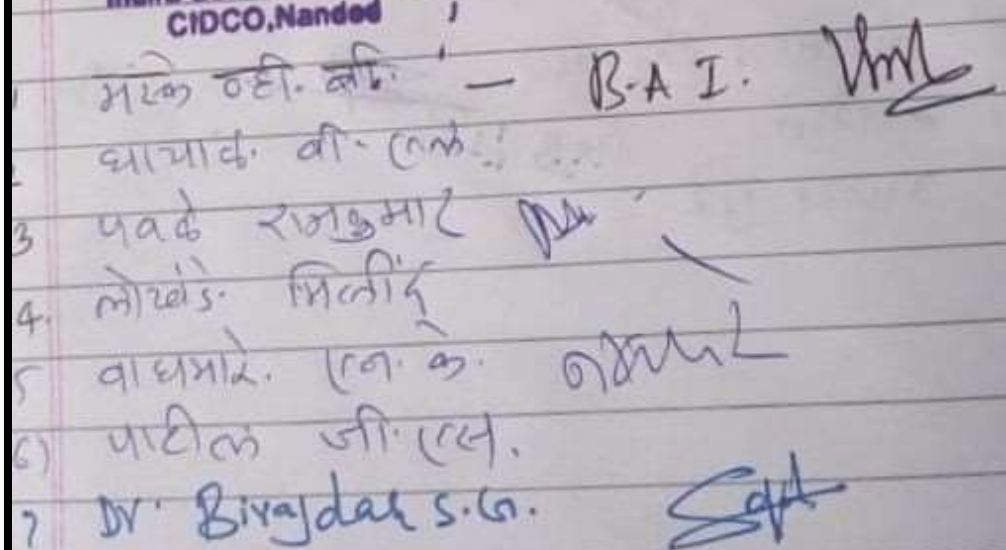 CIDCO,Nanded
व्ही. बी. — B.A I.
बी. एल.
3 पवळे रामकुमार
4. लोखंडे. मिलींद
5 वाघमारे. एन. के.
6) पाटील जी. एस.
7 Dr. Birajdar S.G.